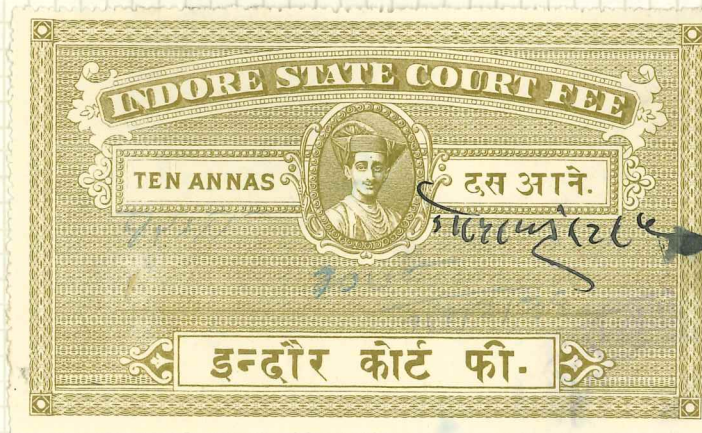 INDORE STATE COURT FEE
TEN ANNAS दस आने.
इन्दौर कोर्ट फी.